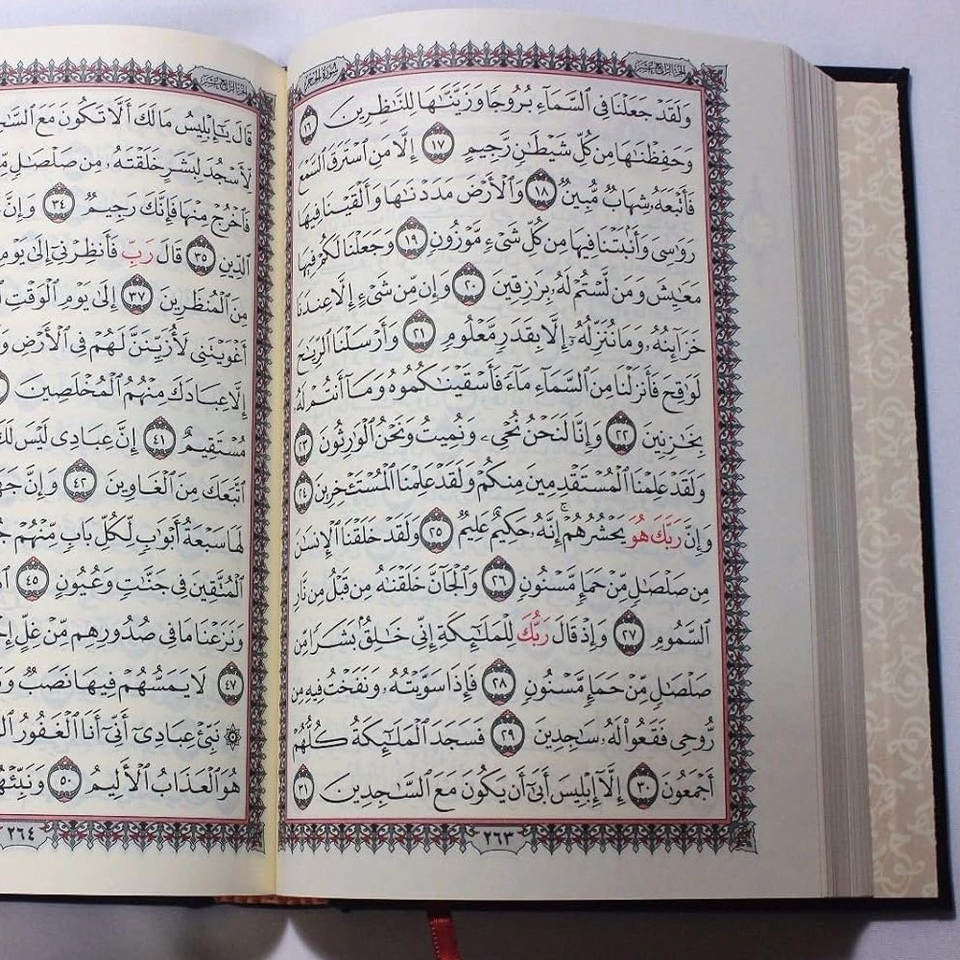 الجزء الرابع عشر
سورة الحجر
وَلَقَدْ جَعَلْنَا فِي ٱلسَّمَآءِ بُرُوجًا وَزَيَّنَّٰهَا لِلنَّٰظِرِينَ ١٦
وَحَفِظْنَٰهَا مِن كُلِّ شَيْطَٰنٍ رَّجِيمٍ ١٧ إِلَّا مَنِ ٱسْتَرَقَ ٱلسَّمْعَ
فَأَتْبَعَهُۥ شِهَابٌ مُّبِينٌ ١٨ وَٱلْأَرْضَ مَدَدْنَٰهَا وَأَلْقَيْنَا فِيهَا
رَوَٰسِيَ وَأَنۢبَتْنَا فِيهَا مِن كُلِّ شَيْءٍ مَّوْزُونٍ ١٩ وَجَعَلْنَا لَكُمْ فِيهَا
مَعَٰيِشَ وَمَن لَّسْتُمْ لَهُۥ بِرَٰزِقِينَ ٢٠ وَإِن مِّن شَيْءٍ إِلَّا عِندَنَا
خَزَآئِنُهُۥ وَمَا نُنَزِّلُهُۥٓ إِلَّا بِقَدَرٍ مَّعْلُومٍ ٢١ وَأَرْسَلْنَا ٱلرِّيَٰحَ
لَوَٰقِحَ فَأَنزَلْنَا مِنَ ٱلسَّمَآءِ مَآءً فَأَسْقَيْنَٰكُمُوهُ وَمَآ أَنتُمْ لَهُۥ
بِخَٰزِنِينَ ٢٢ وَإِنَّا لَنَحْنُ نُحْيِۦ وَنُمِيتُ وَنَحْنُ ٱلْوَٰرِثُونَ ٢٣
وَلَقَدْ عَلِمْنَا ٱلْمُسْتَقْدِمِينَ مِنكُمْ وَلَقَدْ عَلِمْنَا ٱلْمُسْتَـْٔخِرِينَ ٢٤
وَإِنَّ رَبَّكَ هُوَ يَحْشُرُهُمْۚ إِنَّهُۥ حَكِيمٌ عَلِيمٌ ٢٥ وَلَقَدْ خَلَقْنَا ٱلْإِنسَٰنَ
مِن صَلْصَٰلٍ مِّنْ حَمَإٍ مَّسْنُونٍ ٢٦ وَٱلْجَآنَّ خَلَقْنَٰهُ مِن قَبْلُ مِن نَّارِ
ٱلسَّمُومِ ٢٧ وَإِذْ قَالَ رَبُّكَ لِلْمَلَٰٓئِكَةِ إِنِّي خَٰلِقٌۢ بَشَرًا مِّن
صَلْصَٰلٍ مِّنْ حَمَإٍ مَّسْنُونٍ ٢٨ فَإِذَا سَوَّيْتُهُۥ وَنَفَخْتُ فِيهِ مِن
رُّوحِي فَقَعُوا۟ لَهُۥ سَٰجِدِينَ ٢٩ فَسَجَدَ ٱلْمَلَٰٓئِكَةُ كُلُّهُمْ
أَجْمَعُونَ ٣٠ إِلَّآ إِبْلِيسَ أَبَىٰٓ أَن يَكُونَ مَعَ ٱلسَّٰجِدِينَ ٣١
٢٦٣
الجزء الرابع عشر
قَالَ يَٰٓإِبْلِيسُ مَا لَكَ أَلَّا تَكُونَ مَعَ
لِأَسْجُدَ لِبَشَرٍ خَلَقْتَهُۥ مِن صَلْصَٰلٍ
فَٱخْرُجْ مِنْهَا فَإِنَّكَ رَجِيمٌ ٣٤ وَإِنَّ
ٱلدِّينِ ٣٥ قَالَ رَبِّ فَأَنظِرْنِيٓ إِلَىٰ يَوْمِ
مِنَ ٱلْمُنظَرِينَ ٣٧ إِلَىٰ يَوْمِ ٱلْوَقْتِ
أَغْوَيْتَنِي لَأُزَيِّنَنَّ لَهُمْ فِي ٱلْأَرْضِ
إِلَّا عِبَادَكَ مِنْهُمُ ٱلْمُخْلَصِينَ
مُسْتَقِيمٌ ٤١ إِنَّ عِبَادِي لَيْسَ لَكَ
ٱتَّبَعَكَ مِنَ ٱلْغَاوِينَ ٤٢ وَإِنَّ
لَهَا سَبْعَةُ أَبْوَٰبٍ لِّكُلِّ بَابٍ مِّنْهُمْ
ٱلْمُتَّقِينَ فِي جَنَّٰتٍ وَعُيُونٍ ٤٥
وَنَزَعْنَا مَا فِي صُدُورِهِم مِّنْ غِلٍّ
٤٧ لَا يَمَسُّهُمْ فِيهَا نَصَبٌ
۞ نَبِّئْ عِبَادِيٓ أَنِّيٓ أَنَا ٱلْغَفُورُ
هُوَ ٱلْعَذَابُ ٱلْأَلِيمُ ٥٠
٢٦٤